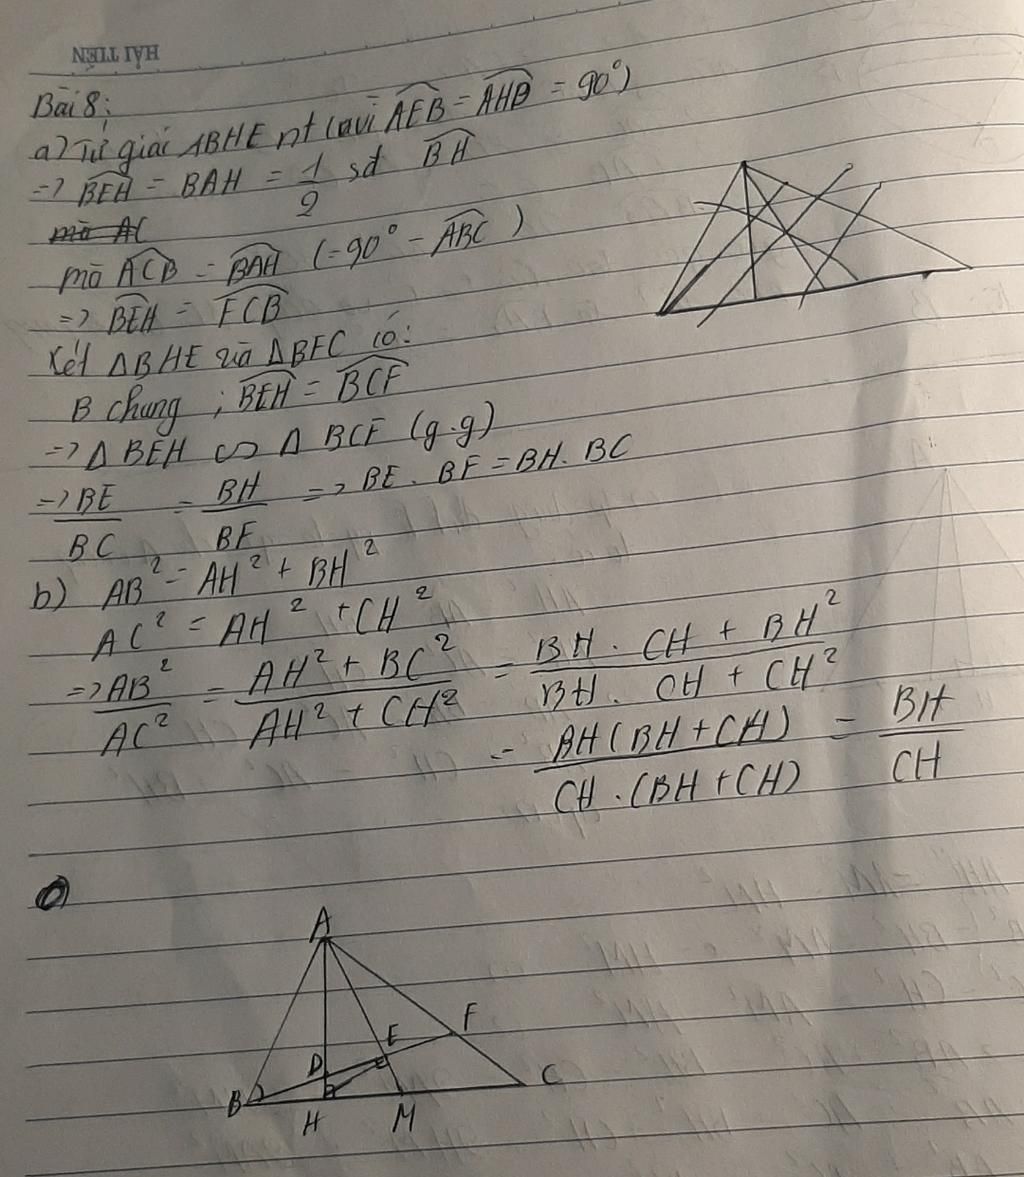 HẢI TIẾN
Bài 8:
a) Tứ giác ABHE nt (avì AEB = AHB = 90°)
=> BEH = BAH = 1/2 sđ BH
mà AC
mà ACB = BAH (=90° - ABC)
=> BEH = FCB
Xét ΔBHE và ΔBFC có:
B chung ; BEH = BCF
=> Δ BEH ∽ Δ BCF (g.g)
=> BE/BC = BH/BF => BE . BF = BH. BC
b) AB² = AH² + BH²
AC² = AH² + CH²
=> AB²/AC² = AH² + BC²/AH² + CH² = BH . CH + BH²/BH . CH + CH²
= BH (BH + CH)/CH . (BH + CH) = BH/CH
A
F
E
D
B
C
H
M